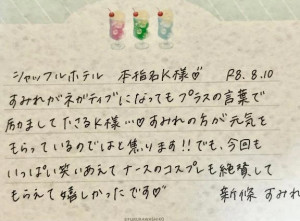 シャッフルホテル 本指名K様♡ R8.8.10
すみれがネガティブになってもプラスの言葉で
励ましてくださるK様…♡すみれの方が元気を
もらっているのではと焦ります!!でも、今回も
いっぱい笑いあえてナースのコスプレも絶賛して
もらえて嬉しかったです♡ 新條 すみれ